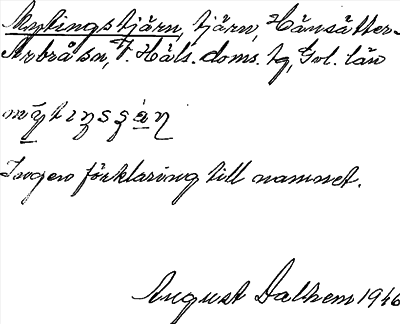 Mytingstjärn, tjärn, Hänsätter-
Arbrå sn, V. Häls. doms. tg, Gvl. län
mytiŋsçäɳ
Ingen förklaring till namnet.
August Dalhem 1946